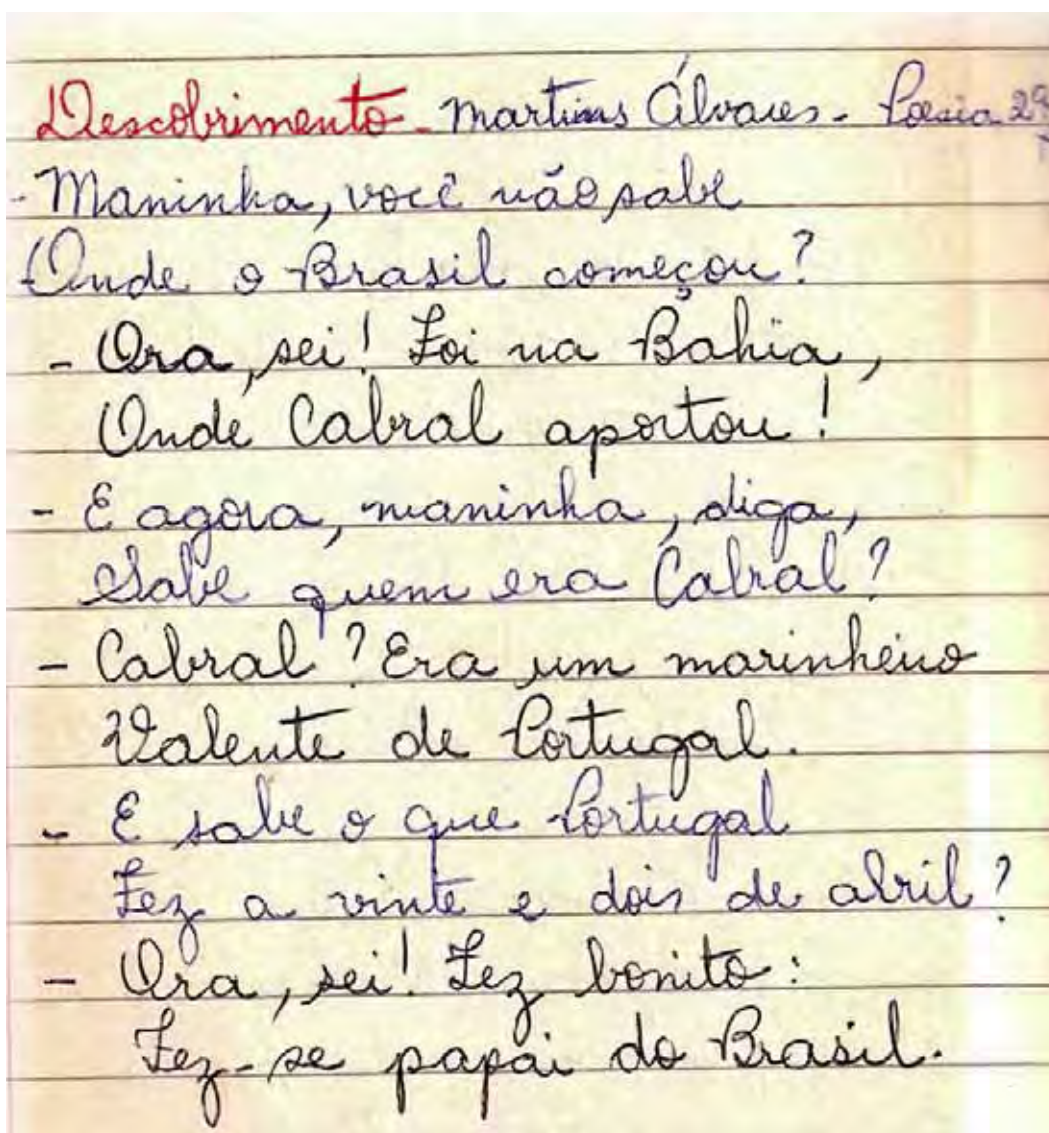 Descobrimento - Martins Álvares - Poesia 2ª
- Maninha, você não sabe
Onde o Brasil começou?
- Ora, sei! Foi na Bahia,
Onde Cabral aportou!
- E agora, maninha, diga,
Sabe quem era Cabral?
- Cabral? Era um marinheiro
Valente de Portugal.
- E sabe o que Portugal
Fez a vinte e dois de abril?
- Ora, sei! Fez bonito:
Fez-se papai do Brasil.